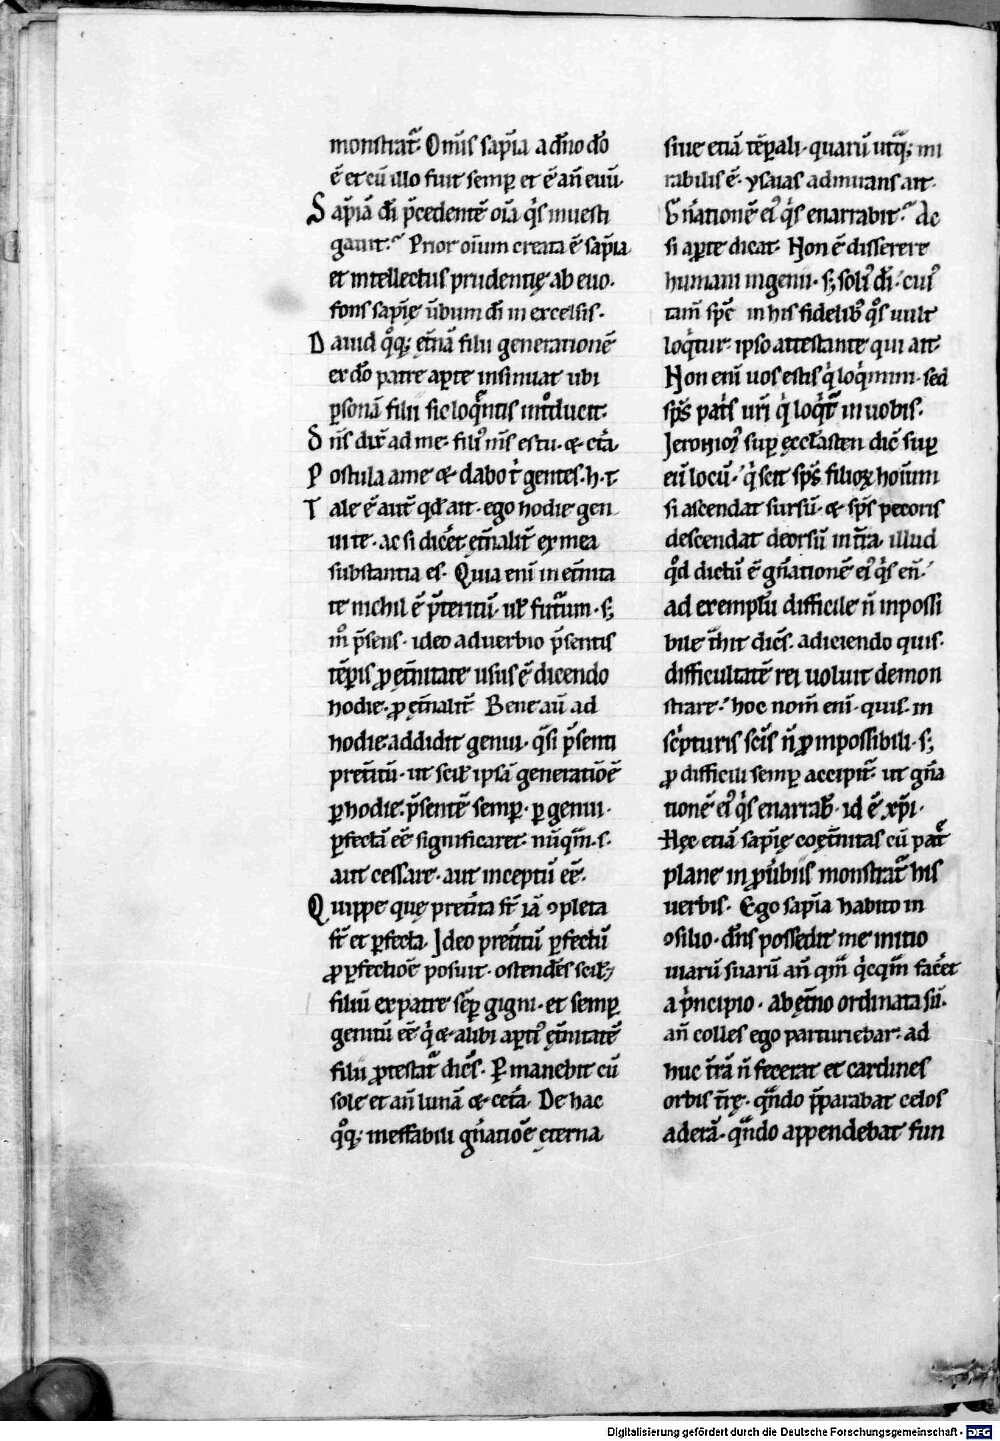 monstrat᷑. Om̄is sap̄ia a dn̄o dō
ē et cū illo fuit semꝑ et ē an̄ euū.
Sap̄iā dī p̄cedentē oīa q̇s inuesti
gauit. Prior oīum creata ē sap̄ia
et intellectus prudentię ab euo.
fons sap̄ię ūbum dī in excelsis.
Dauid q̊q; et̄nā filii generationē
ex dō patre aꝑte insinuat ubi
ꝑsonā filii sic loq̄ntis int̊ducit.
Dn̄s dix̄ ad me. filiꝰ m̄s es tu. ⁊ cet̄a.
Postula a me ⁊ dabo t̄ gentes. h. t.
Tale ē aut̄ qd̄ ait. ego hodie gen
ui te. ac si dicēt et̄nalit̄ ex mea
substantia es. Quia enī in et̄nita
te nichil ē p̄teritū. uł fut̄um. s;
m̊ p̄sens. ideo aduerbio p̄sentis
tēꝑis ꝓ ęt̄nitate usus ē dicendo
hodie. ꝓ ęt̄nalit̄. Bene aū ad
hodie addidit genui. q̄si p̄senti
pret̄itū. ut scił ipsā generatiōē
ꝑ hodie. p̄sentē semꝑ. ꝑ genui.
ꝑfectā eē significaret. nūqm̄. s.
aut cessare. aut inceptū eē.
Quippe quę pret̄ita st̄ iā ꝯpleta
st̄ et ꝑfecta. Ideo pret̄itū ꝑfectū
ꝓ ꝑfectiōe posuit. ostendēs scił;
filiū ex patre sēꝑ gigni. et semꝑ
genitū eē. q̇ ⁊ alibi aꝑtiꝰ ęt̄nitatē
filii ꝓtestat᷑ dicēs. Ꝑmanebit cū
sole et an̄ lunā ⁊ cet̄a. De hac
q̊q; ineffabili gn̄atiōe ęterna
siue etiā tēꝑali. quarū ut̄q; mi
rabilis ē. ysaias admirans ait.
Gn̄ationē eiꝰ q̇s enarrabit. Ac
si aꝑte dicat. Non ē disserere
humani ingenii. s; soliꝰ dī. cuiꝰ
tam̄ spc̄ in his fidelibꝰ q̊s uult
loq̇tur. ipso attestante qui ait.
Non enī uos estis q̇ loq̇mini. sed
sps̄ pat̄s ur̄i q̇ loq̇t᷑ in uobis.
Jeronimꝰ suꝑ ęccłasten dic̄ suꝑ
eū locū. q̇ scit sps̄ filioꝝ hoīum
si ascendat sursū. ⁊ sps̄ pecoris
descendat deorsū in t̄ra. illud
q̊d dictū ē gn̄ationē eiꝰ q̇s en̄.
ad exemplū difficile n̄ inpossi
bile t̄hit dicēs. adiciendo quis.
difficultatē rei uoluit demon
strare. hoc nom̄ enī. quis. in
sc̄pturis scīs n̄ ꝓ inpossibili. s;
ꝓ difficili semꝑ accipit᷑. ut gn̄a
tionē eiꝰ q̇s enarrab̄. id ē xp̄i.
Hęc etiā sap̄ię coęt̄nitas cū pat̄
plane in ꝓūbiis monstrat᷑ his
uerbis. Ego sap̄ia habito in
ꝯsilio. dn̄s possedit me initio
uiarū suarū an̄ qm̄ q̇cqm̄ facēt
a ṗncipio. ab ęt̄no ordinata sū.
an̄ colles ego parturiebar. ad
huc t̄rā n̄ fecerat et cardines
orbis t̄rę. qn̄do p̄parabat celos
aderā. qn̄do appendebat fun
Digitalisierung gefördert durch die Deutsche Forschungsgemeinschaft - DFG